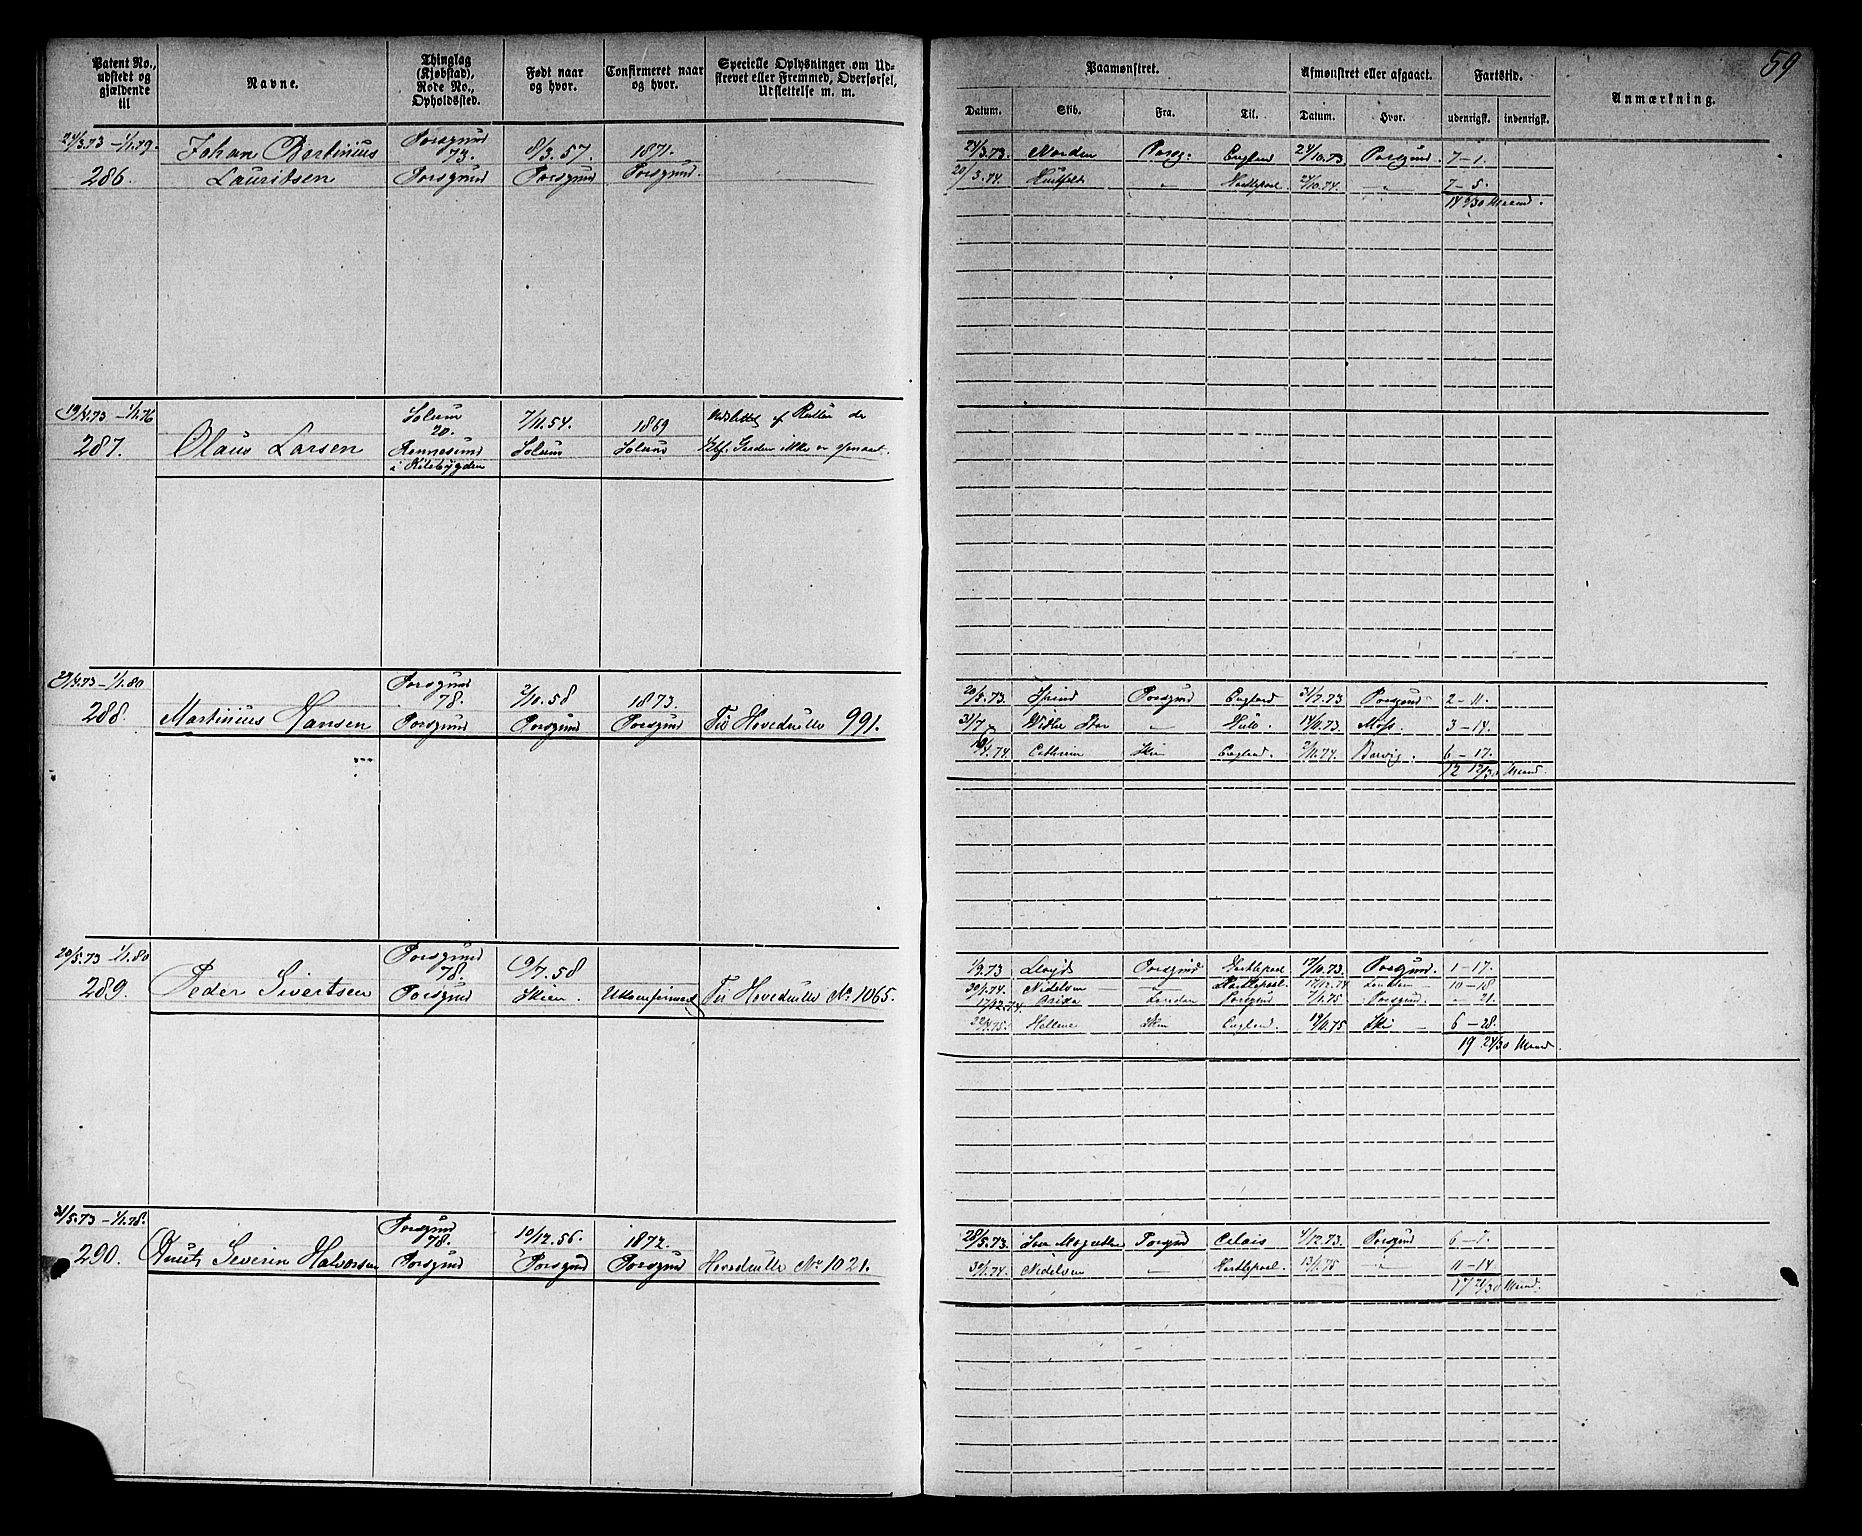 59
Patent No., udstedt og gjældende til
Navne.
Thinglag (Kjøbstad), Rode No., Opholdssted.
Født naar og hvor.
Confirmeret naar og hvor.
Specielle Oplysninger om Udskrevet eller Fremmed, Overførsel, Udslettelse m. m.
Paamønstret.
Afmønstret eller afgaaet.
Fartstid.
Anmærkning.
Datum. Skib. Fra. Til. Datum. Hvor. udenrigsk. indenrigsk.
24/3.73 – 1/1.79. Johan Bertinius Porsgrund 73. 8/3.57. 1871.
286. Lauritsen Porsgrund Porsgrund Porsgrund.
24/3.73. Norden Porsg. England 24/10.73 Porsgrund 7–1.
20/3.74. Hartlepool 24/10.74. 7–5.
14 6/30 Maaned.
19/4.73 – 1/1.76 Solum 20. 7/11.54. 1869
287. Olaus Larsen i Kilebygden Solum Solum ikke er
29/4.73 – 1/1.80 Porsgrund 78. 2/10.58 1873.
288. Martinius Hansen Porsgrund Porsgrund Porsgrund Til Hovedrulle 991.
20/5.73 Porsgrund England 31/7.73 Porsgrund 2–11
31/7 Hull. 14/11.73. Moss. 3–14.
Skien England. 2/11.74. 6–17.
12 12/30 Maaned.
20/5.73 – 1/1.80 Porsgrund 78. 9/7.58
289. Peder Sivertsen Porsgrund Skien. Ukonfirmeret Til Hovedrulle No. 1065.
1/9.73 Lloyds Porsgrund Hartlepool 17/10.73. Porsgrund. 1–17.
30/1.74. Nidelven Hartlepool. 17/12.74 London 10–18
17/12.74. London Porsgrund 7/1.75 Porsgrund. – 21.
Hellene Skien England. 19/11.75 Skien 6–28.
19 24/30 Maaned.
31/5.73 – 1/1.78. Porsgrund 78. 19/12.56. 1872.
290. Knut Severin Halvorsen Porsgrund Porsgrund Porsgrund Hovedrulle No. 1021.
28/5.73. Porsgrund Calais 4/12.73. Porsgrund 6–7
30/1.74. Nidelven Hartlepool. 13/1.75 11–14
17 21/30 Maaned.